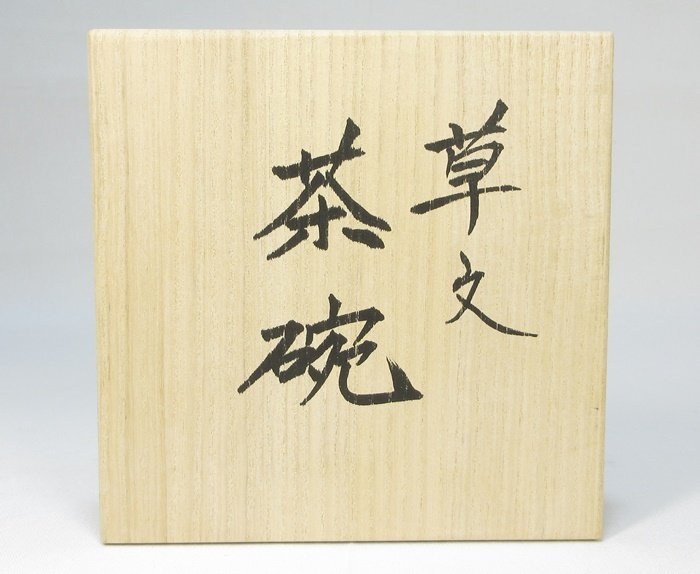 草文
茶碗